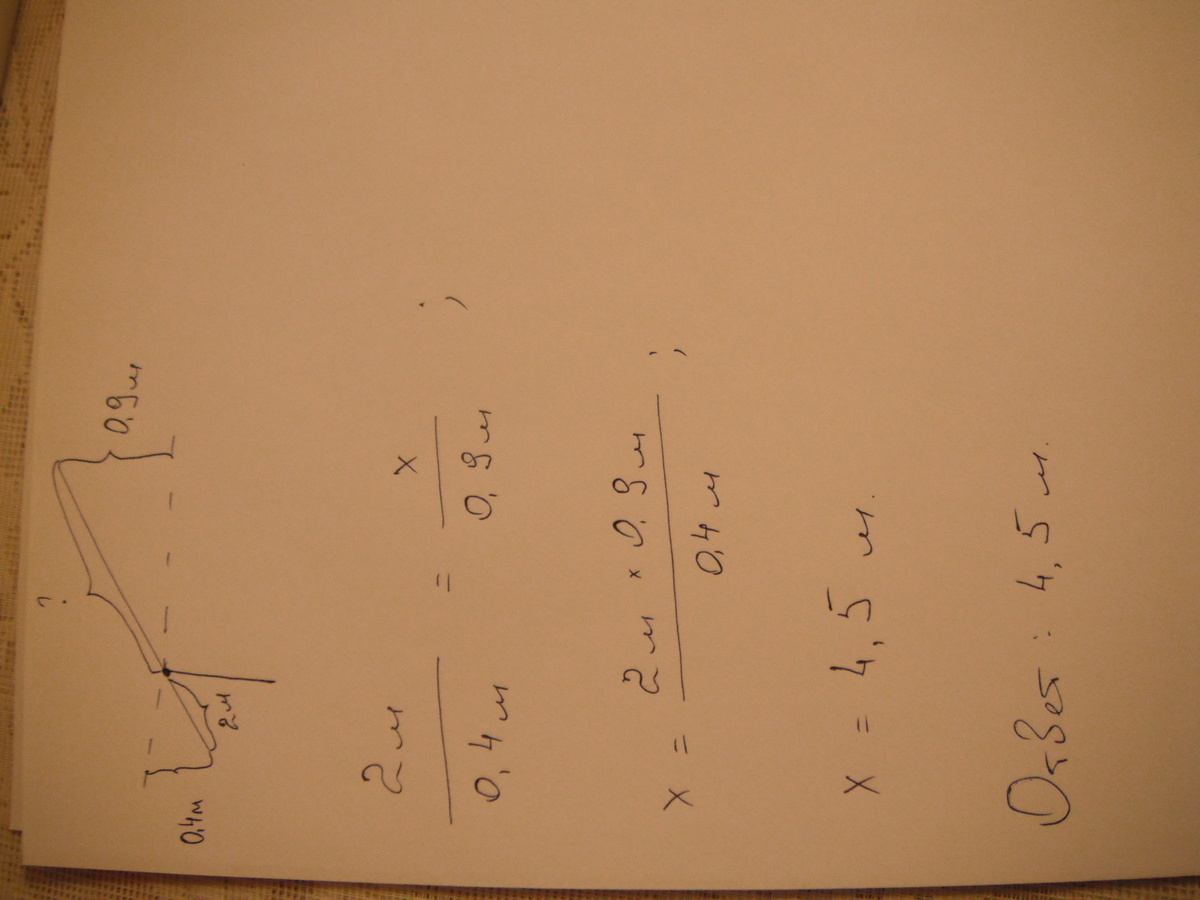 ?
0,9 м
0,4 м
2 м
2 м / 0,4 м = x / 0,9 м ;
x = 2 м × 0,9 м / 0,4 м ;
x = 4,5 м.
Ответ: 4,5 м.